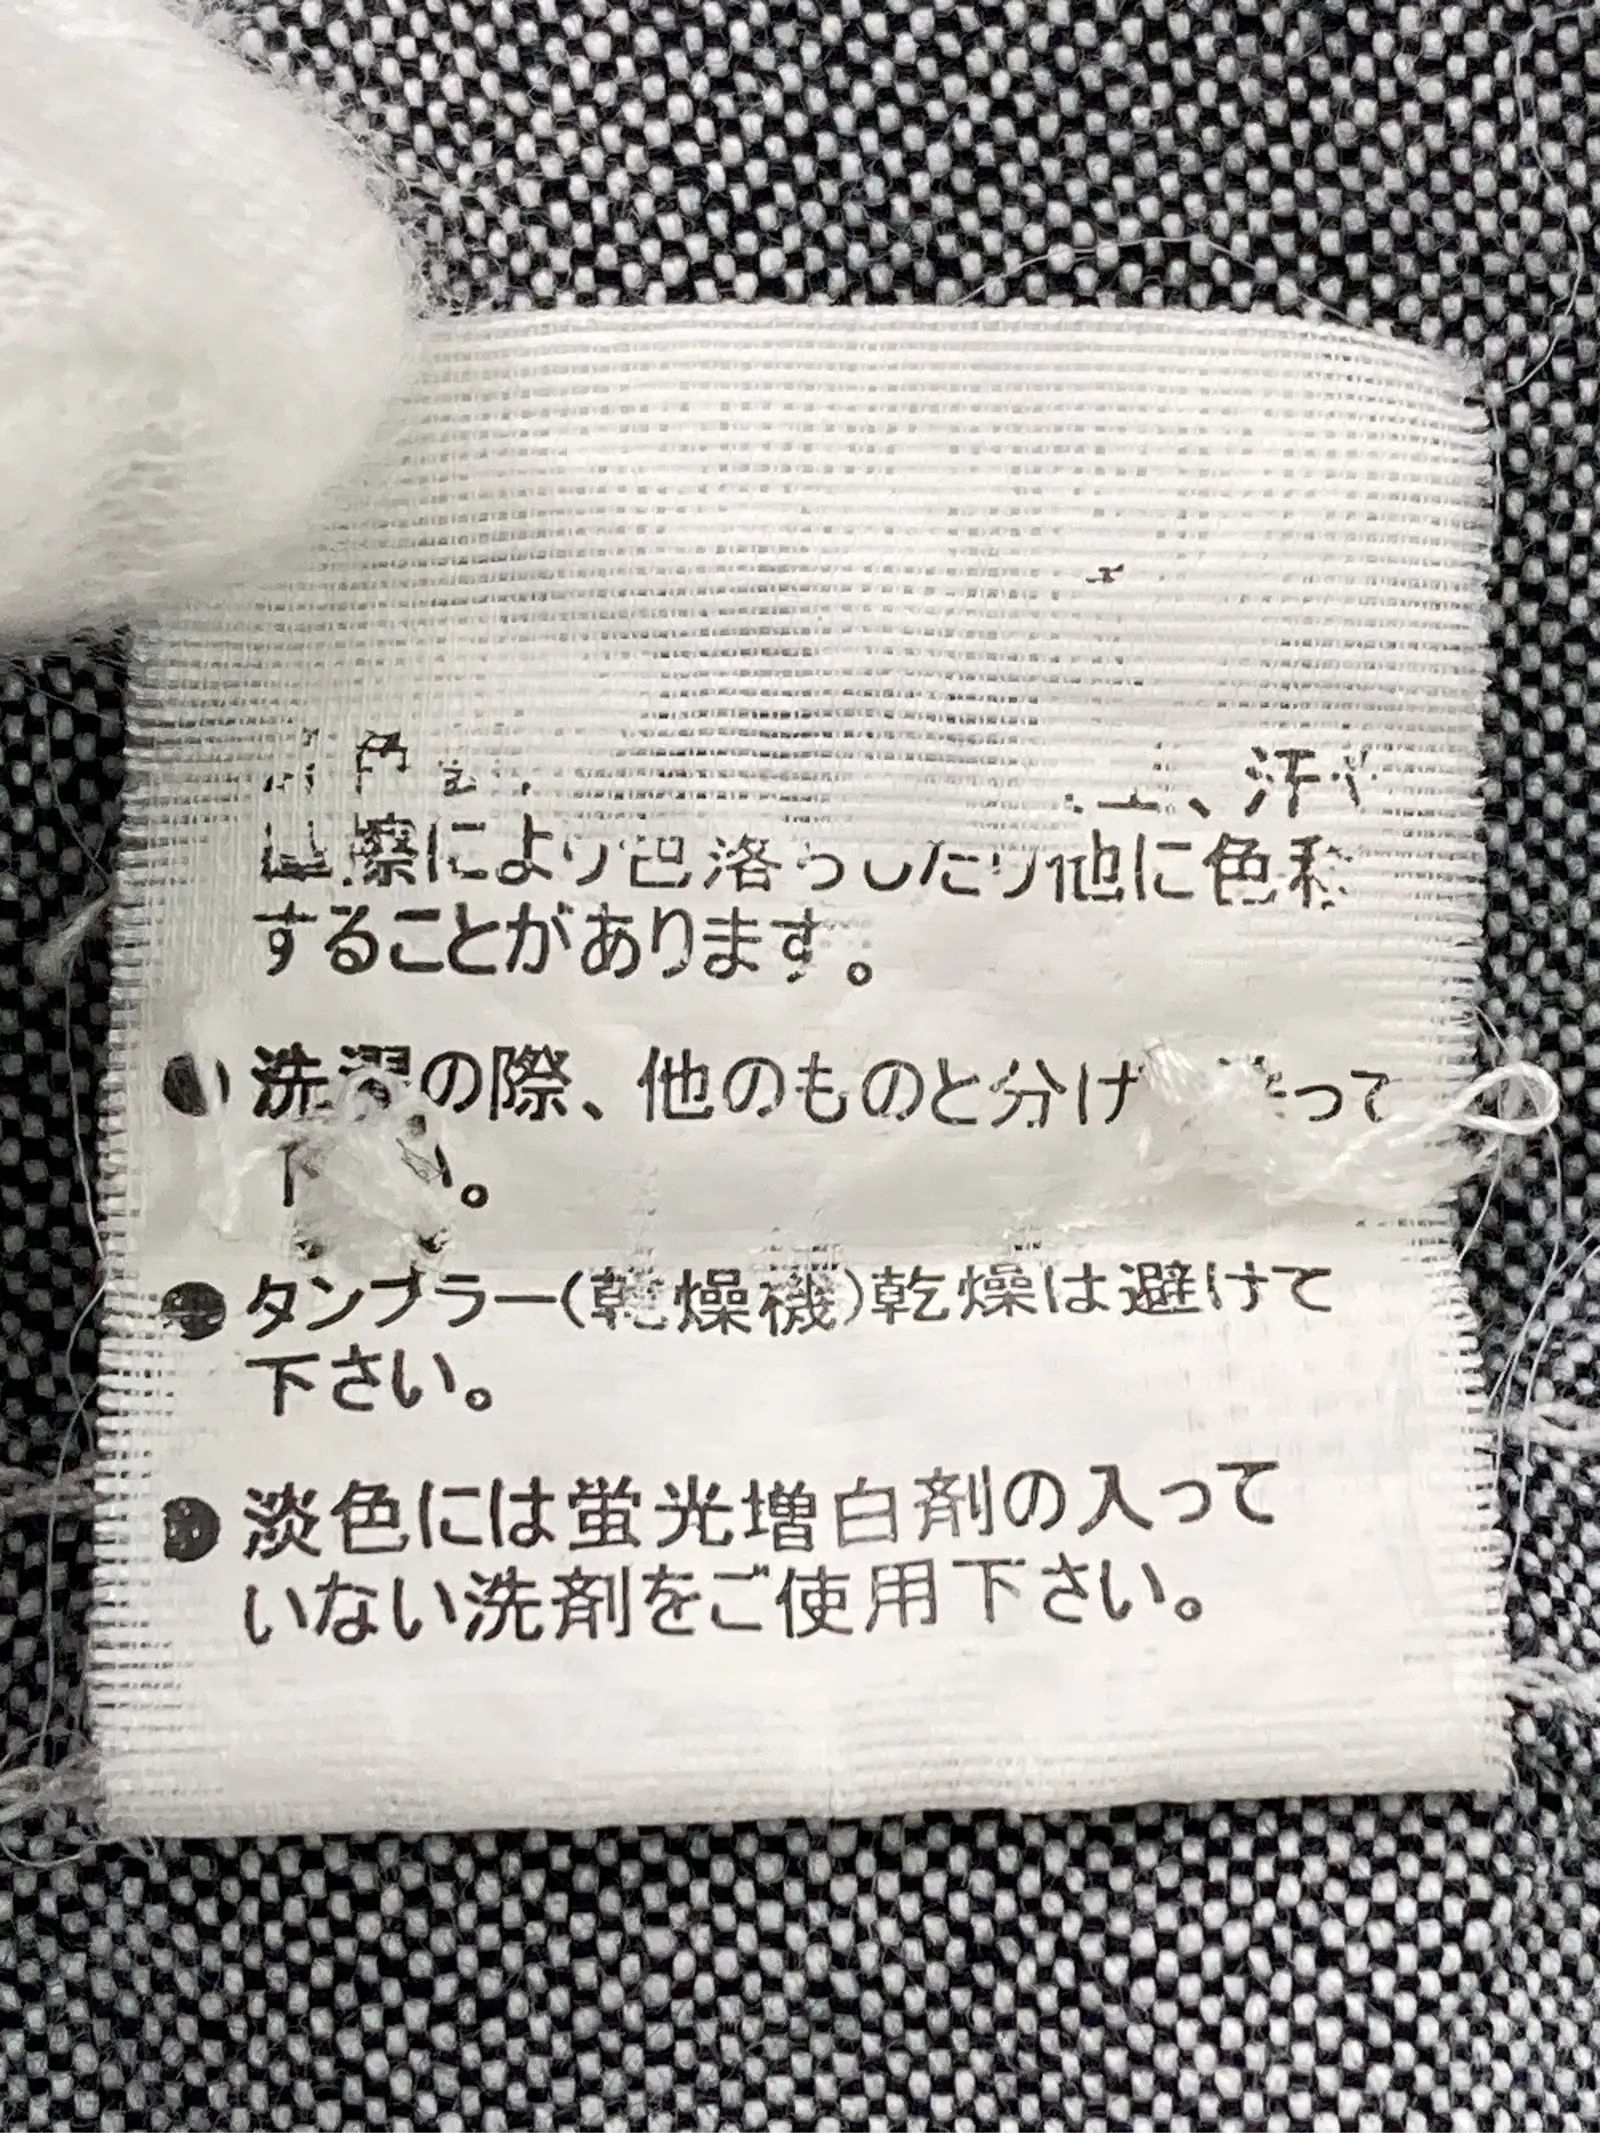 、汗や
擦により色落ちしたり他に色移
することがあります。
●洗濯の際、他のものと分け 洗って
下さい。
●タンブラー(乾燥機)乾燥は避けて
下さい。
●淡色には蛍光増白剤の入って
いない洗剤をご使用下さい。